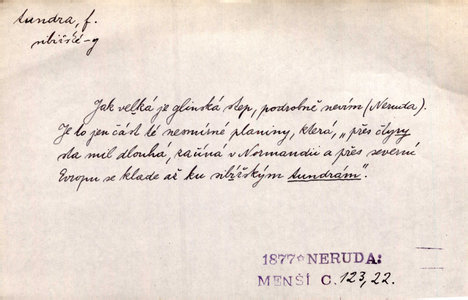 tundra, f.
sibiřské-g
Jak velká je glinská step, podrobně nevím (Neruda).
Je to jen část té nesmírné planiny, která, „přes čtyry
sta mil dlouhá, začíná v Normandii a přes severní
Evropu se klade až ku sibiřským tundrám".
1877 * NERUDA:
MENŠÍ C. 123, 22.